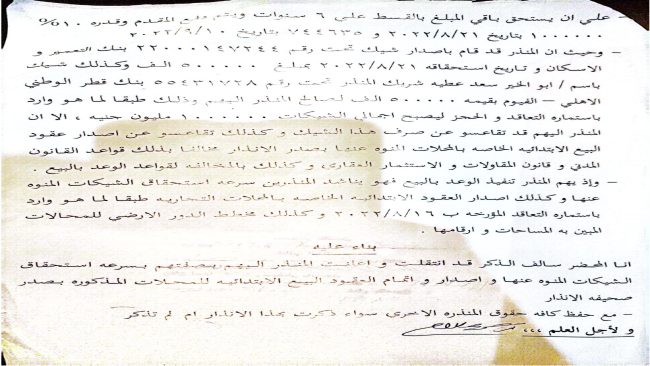 – علي ان يستحق باقي المبلغ بالقسط على ٦ سنوات ويتم دفع المقدم وقدره ١٠%
١٠٠٠٠٠٠ بتاريخ ٢٠٢٢/٨/٢١ و ٧٤٤٦٣٥ بتاريخ ٢٠٢٢/٩/١٠
– وحيث ان المنذر قد قام باصدار شيك تحت رقم ٢٢٠٠٠١٤٧٢٤٤ بنك التعمير و
الاسكان و تاريخ استحقاقه ٢٠٢٢/٨/٢١ بمبلغ ٥٠٠٠٠٠ الف وكذلك شيك
باسم / ابو الخير سعد عطيه شريك المنذر تحت رقم ٥٥٤٣١٧٢٨ بنك قطر الوطني
الاهلي – الفيوم بقيمه ٥٠٠٠٠٠ الف لصالح المنذر اليهم وذلك طبقا لما هو وارد
باستماره التعاقد و الحجز ليصبح اجمالي الشيكات ١٠٠٠٠٠٠ مليون جنيه ، الا ان
المنذر اليهم قد تقاعسو عن صرف هذا الشيك و كذلك تقاعسو عن اصدار عقود
البيع الابتدائيه الخاصه بالمحلات المنوه عنها بصدر الانذار مخالفا بذلك قواعد القانون
المدني و قانون المقاولات و الاستثمار العقاري و كذلك بالمخالفه لقواعد الوعد بالبيع .
– وإذ يهم المنذر تنفيذ الوعد بالبيع فهو يناشد المنذرين سرعه استحقاق الشيكات المنوه
عنها و كذلك اصدار العقود الابتدائيه الخاصه بالمحلات التجاريه طبقا لما هو وارد
باستماره التعاقد المؤرخه ب ٢٠٢٢/٨/١٦ و كذلك مخطط الدور الارضي للمحلات
المبين به المساحات و ارقامها .
بناء عليه
انا المحضر سالف الذكر قد انتقلت و اعلنت المنذر اليهم بصفتهم بسرعه استحقاق
الشيكات المنوه عنها و اصدار و اتمام العقود البيع الابتدائيه للمحلات المذكوره بصدر
صحيفه الانذار
– مع حفظ كافه حقوق المنذره الاخرى سواء ذكرت بهذا الانذار ام لم تذكر
و لأجل العلم ,,,